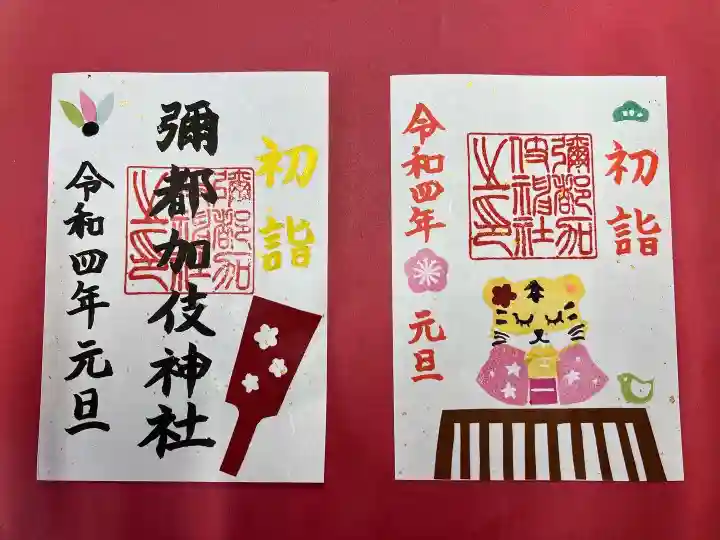 初詣
彌都加伎神社
令和四年元旦
彌都加
伎神社
之印
初詣
彌都加
伎神社
之印
令和四年
元旦